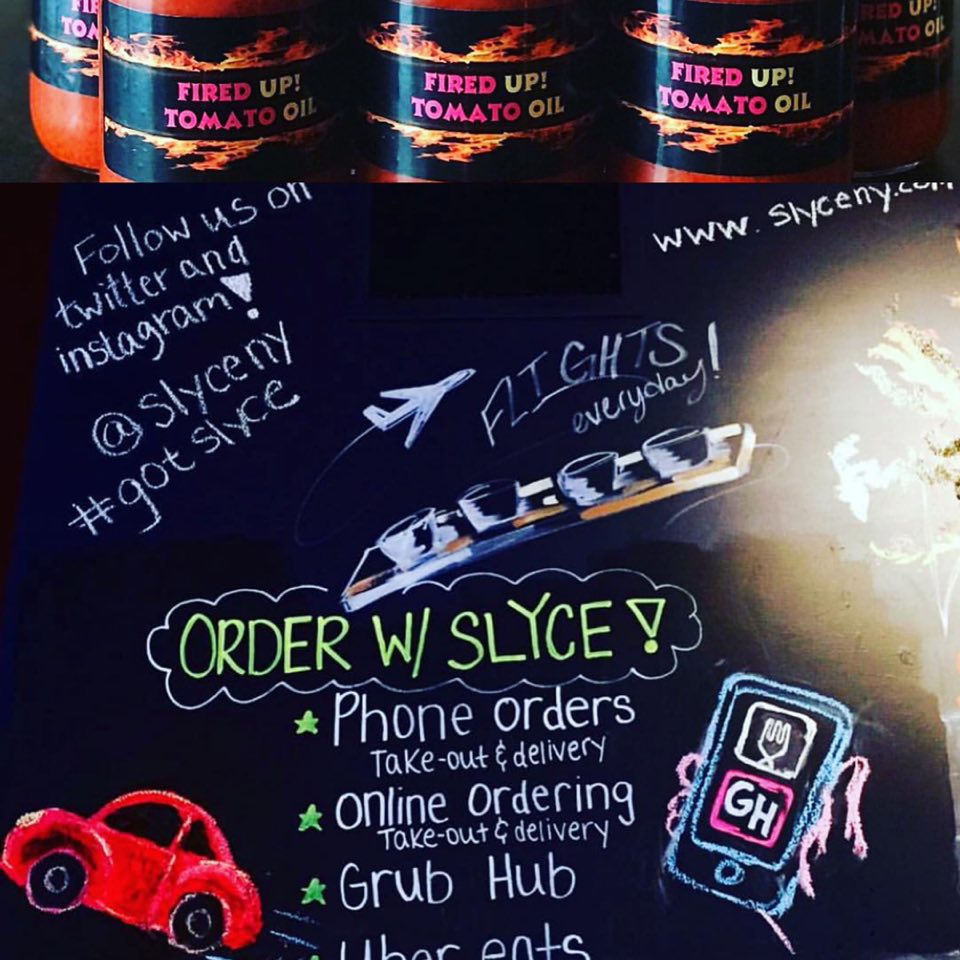 FIRED UP!
TOMATO OIL
FIRED UP!
TOMATO OIL
FIRED UP!
TOMATO OIL
RED UP!
MATO OIL
Follow us on
twitter and
instagram!
@slyceny
#gotslyce
www.slyceny.com
FLIGHTS
everyday!
ORDER W/ SLYCE!
Phone orders
Take-out & delivery
Online Ordering
Take-out & delivery
Grub Hub
Uber eats
GH